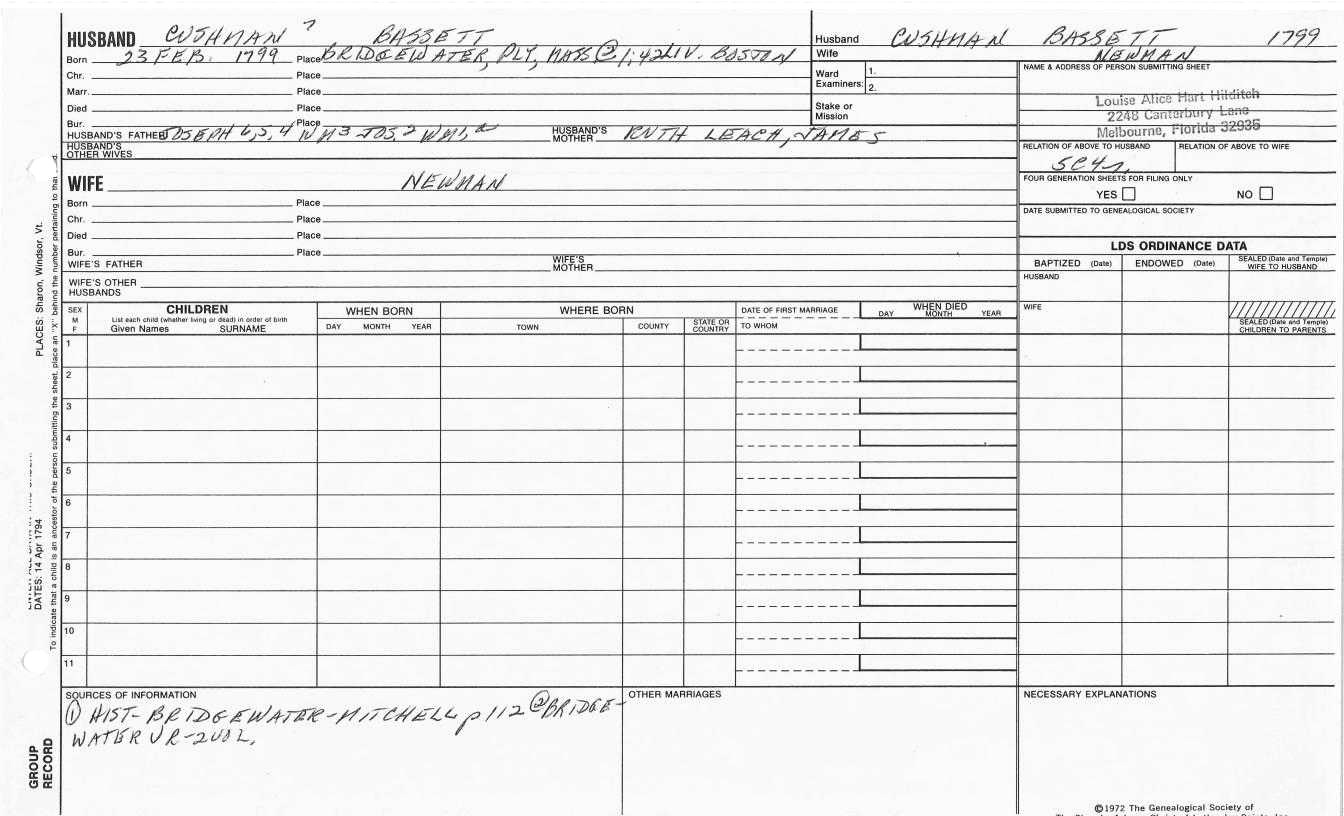 HUSBAND CUSHMAN 7 BASSETT
Born 23 FEB. 1799 Place BRIDGEWATER, PLY, MASS ② 1:42 LIV. BOSTON
Chr. Place
Marr. Place
Died Place
Bur. Place
HUSBAND'S FATHER JOSEPH 6,5,4 WM3 JOS.2 WM1, HUSBAND'S MOTHER RUTH LEACH, JAMES
HUSBAND'S OTHER WIVES
Husband CUSHMAN BASSETT 1799
Wife NEWMAN
Ward Examiners: 1.
2.
Stake or Mission
NAME & ADDRESS OF PERSON SUBMITTING SHEET
Louise Alice Hart Hilditch
2248 Canterbury Lane
Melbourne, Florida 32935
RELATION OF ABOVE TO HUSBAND RELATION OF ABOVE TO WIFE
FOUR GENERATION SHEETS FOR FILING ONLY
YES NO
DATE SUBMITTED TO GENEALOGICAL SOCIETY
WIFE NEWMAN
Born Place
Chr. Place
Died Place
Bur. Place
WIFE'S FATHER WIFE'S MOTHER
WIFE'S OTHER HUSBANDS
LDS ORDINANCE DATA
BAPTIZED (Date) ENDOWED (Date) SEALED (Date and Temple) WIFE TO HUSBAND
HUSBAND
WIFE
SEALED (Date and Temple) CHILDREN TO PARENTS
SEX M F
CHILDREN
List each child (whether living or dead) in order of birth
Given Names SURNAME
WHEN BORN
DAY MONTH YEAR
WHERE BORN
TOWN COUNTY STATE OR COUNTRY
DATE OF FIRST MARRIAGE
TO WHOM
WHEN DIED
DAY MONTH YEAR
1
2
3
4
5
6
7
8
9
10
11
SOURCES OF INFORMATION
① HIST-BRIDGEWATER-MITCHELL p 112 ② BRIDGE-
WATER VR-2VOL.
OTHER MARRIAGES
NECESSARY EXPLANATIONS
©1972 The Genealogical Society of
PLACES: Sharon, Windsor, Vt.
DATES: 14 Apr 1794
To indicate that a child is an ancestor of the person submitting the sheet, place an "X" behind the number pertaining to that
GROUP RECORD